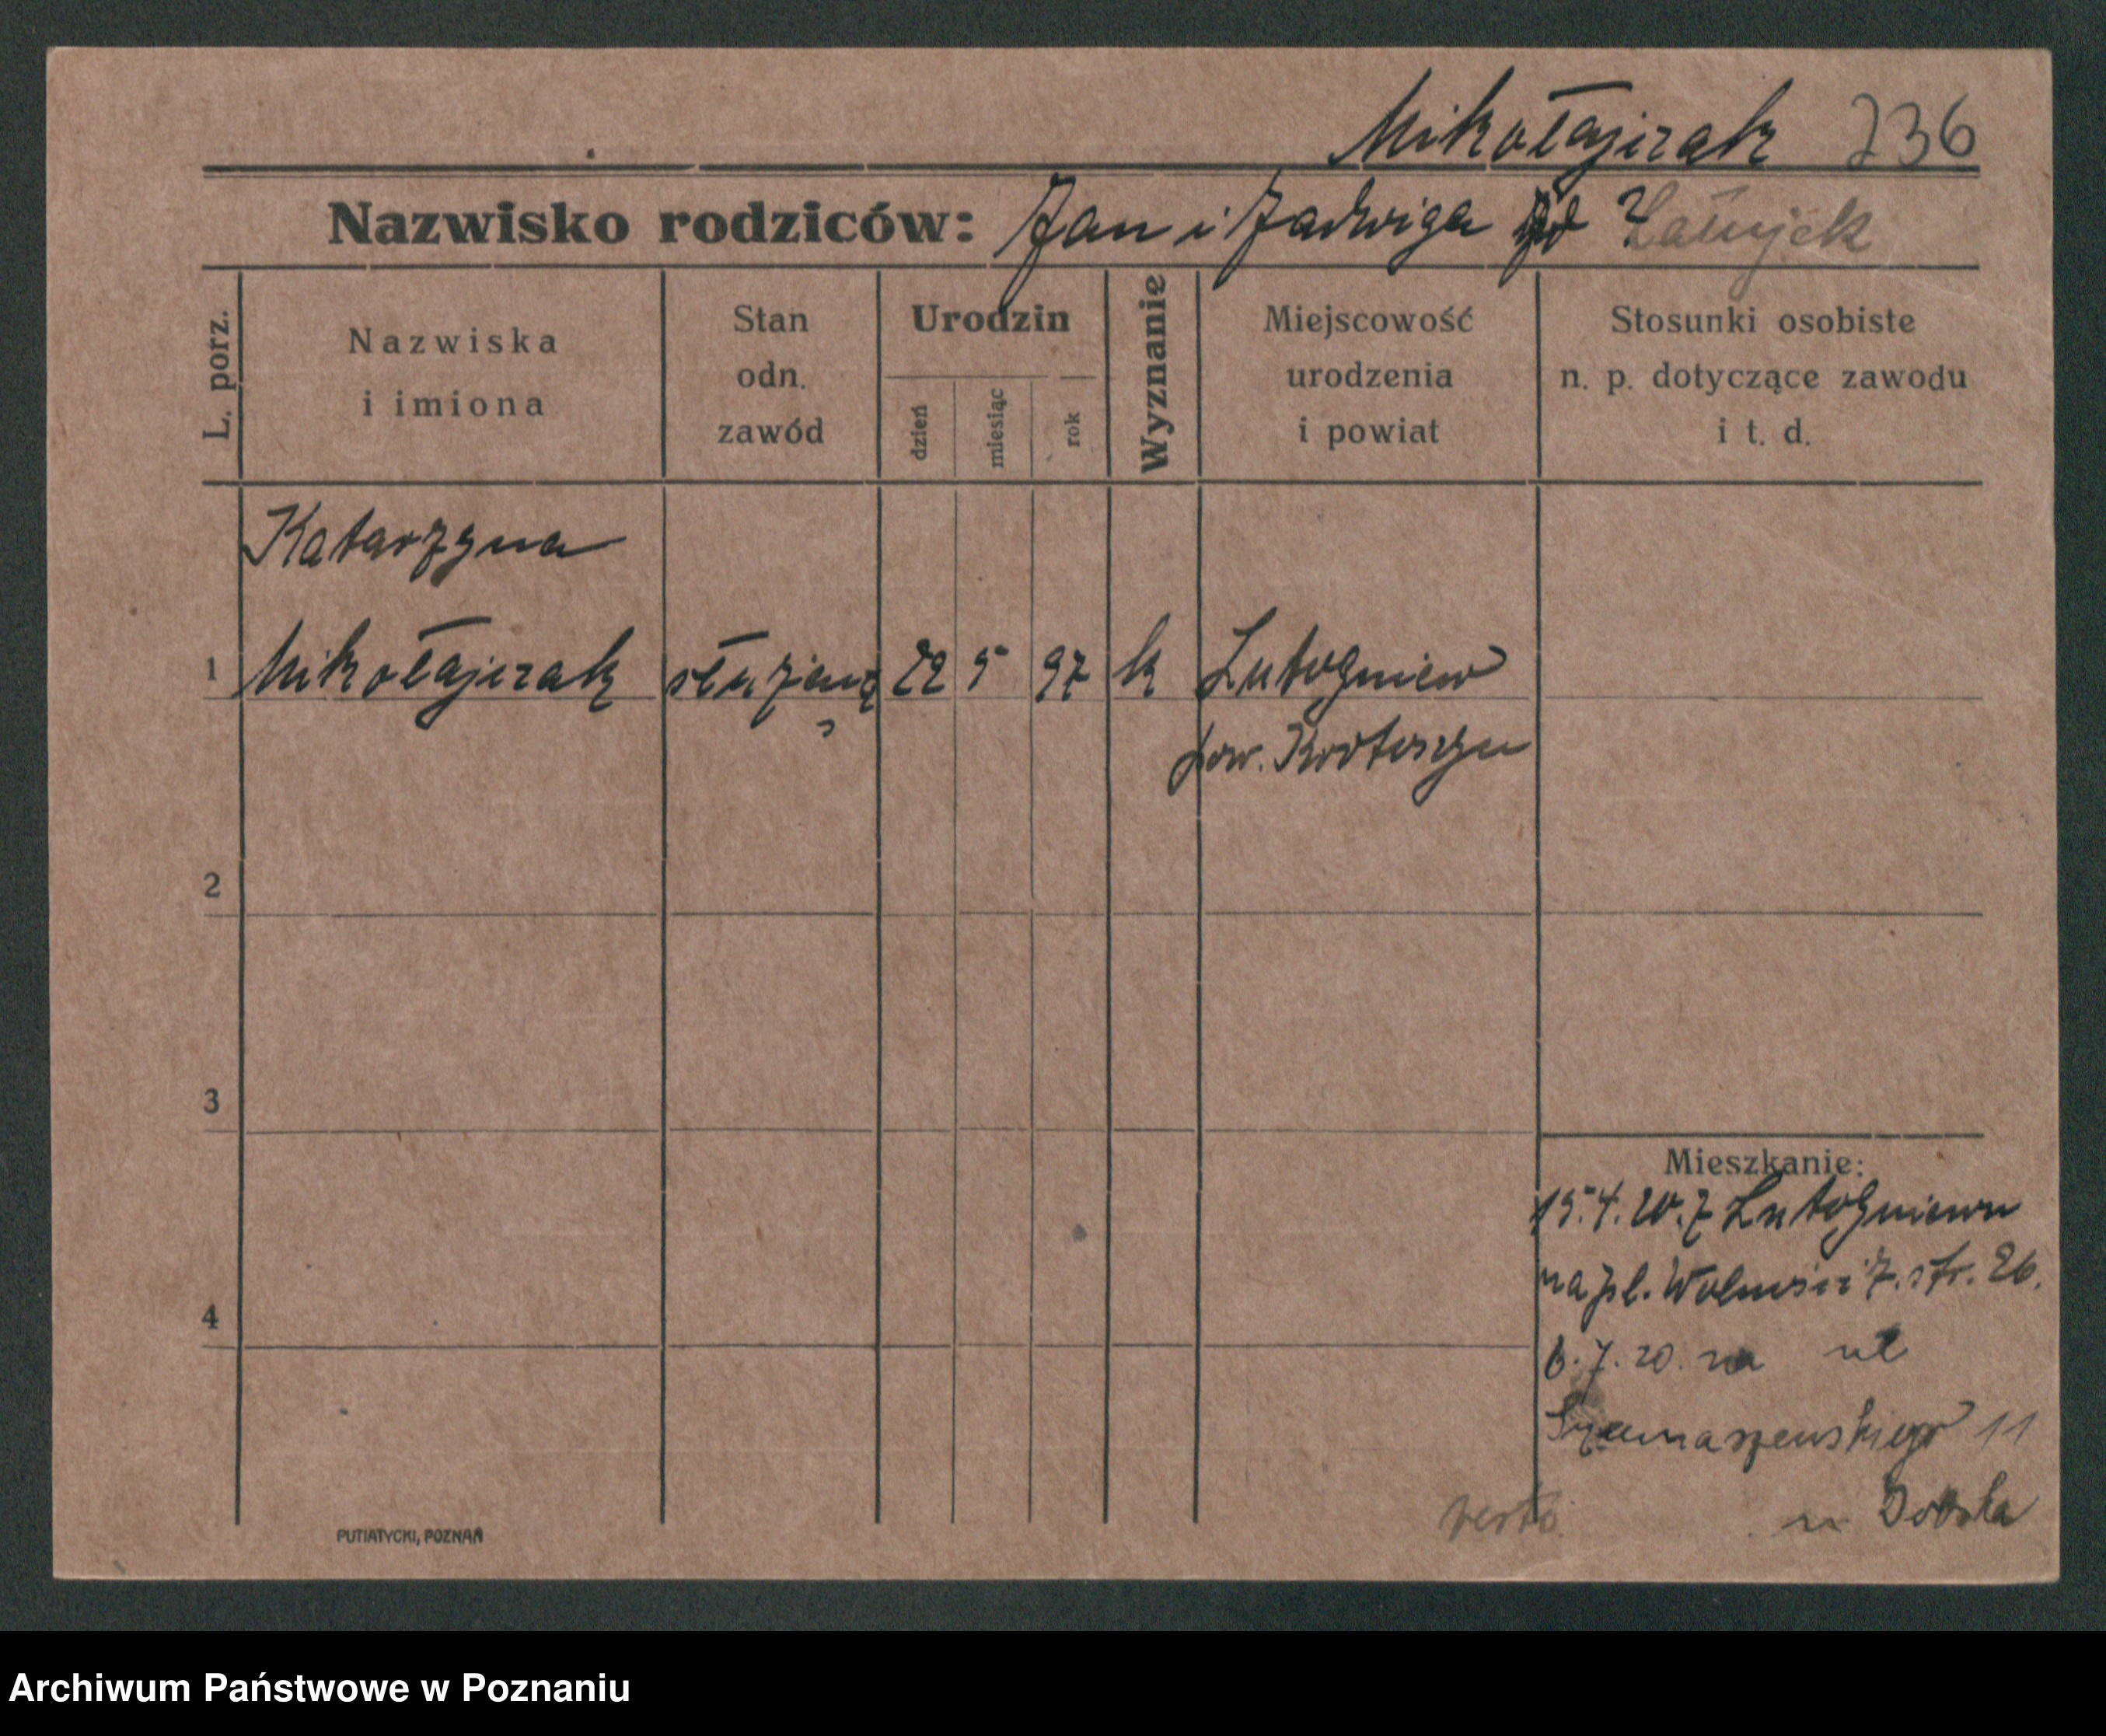 Mikołajczak 736
Nazwisko rodziców: Jan i Jadwiga
L. porz.
Nazwiska
i imiona
Stan
odn.
zawód
Urodzin
dzień
miesiąc
rok
Wyznanie
Miejscowość
urodzenia
i powiat
Stosunki osobiste
n. p. dotyczące zawodu
i t. d.
Katarzyna
1 Mikołajczak służąca 22 5 97 k Lutogniew
pow. Krotoszyn
2
3
4
Mieszkanie:
15.4.20. z Lutogniewa
na pl. Wolności 7. str. 26.
6.7.20. na ul
Szamarzewskiego 11
u
verto.
PUTIATYCKI, POZNAŃ
Archiwum Państwowe w Poznaniu